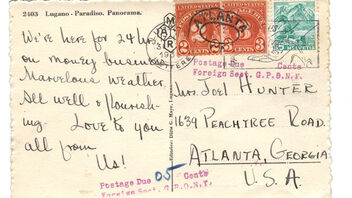 2403 Lugano - Paradiso. Panorama.
We're here for 24 hrs
on money business
Marvelous weather.
All well & flourish-
ing Love to you
all from
Us!
ATLANTA
2 CENTS 2 CENTS
Postage Due Cents
Foreign Sect. G.P.O.N.Y.
Mrs. Joel HUNTER
1639 PEACHTREE ROAD.
ATLANTA, GEORGIA
U.S.A.
Postage Due 05 Cents
Foreign Sect. G.P.O.N.Y.